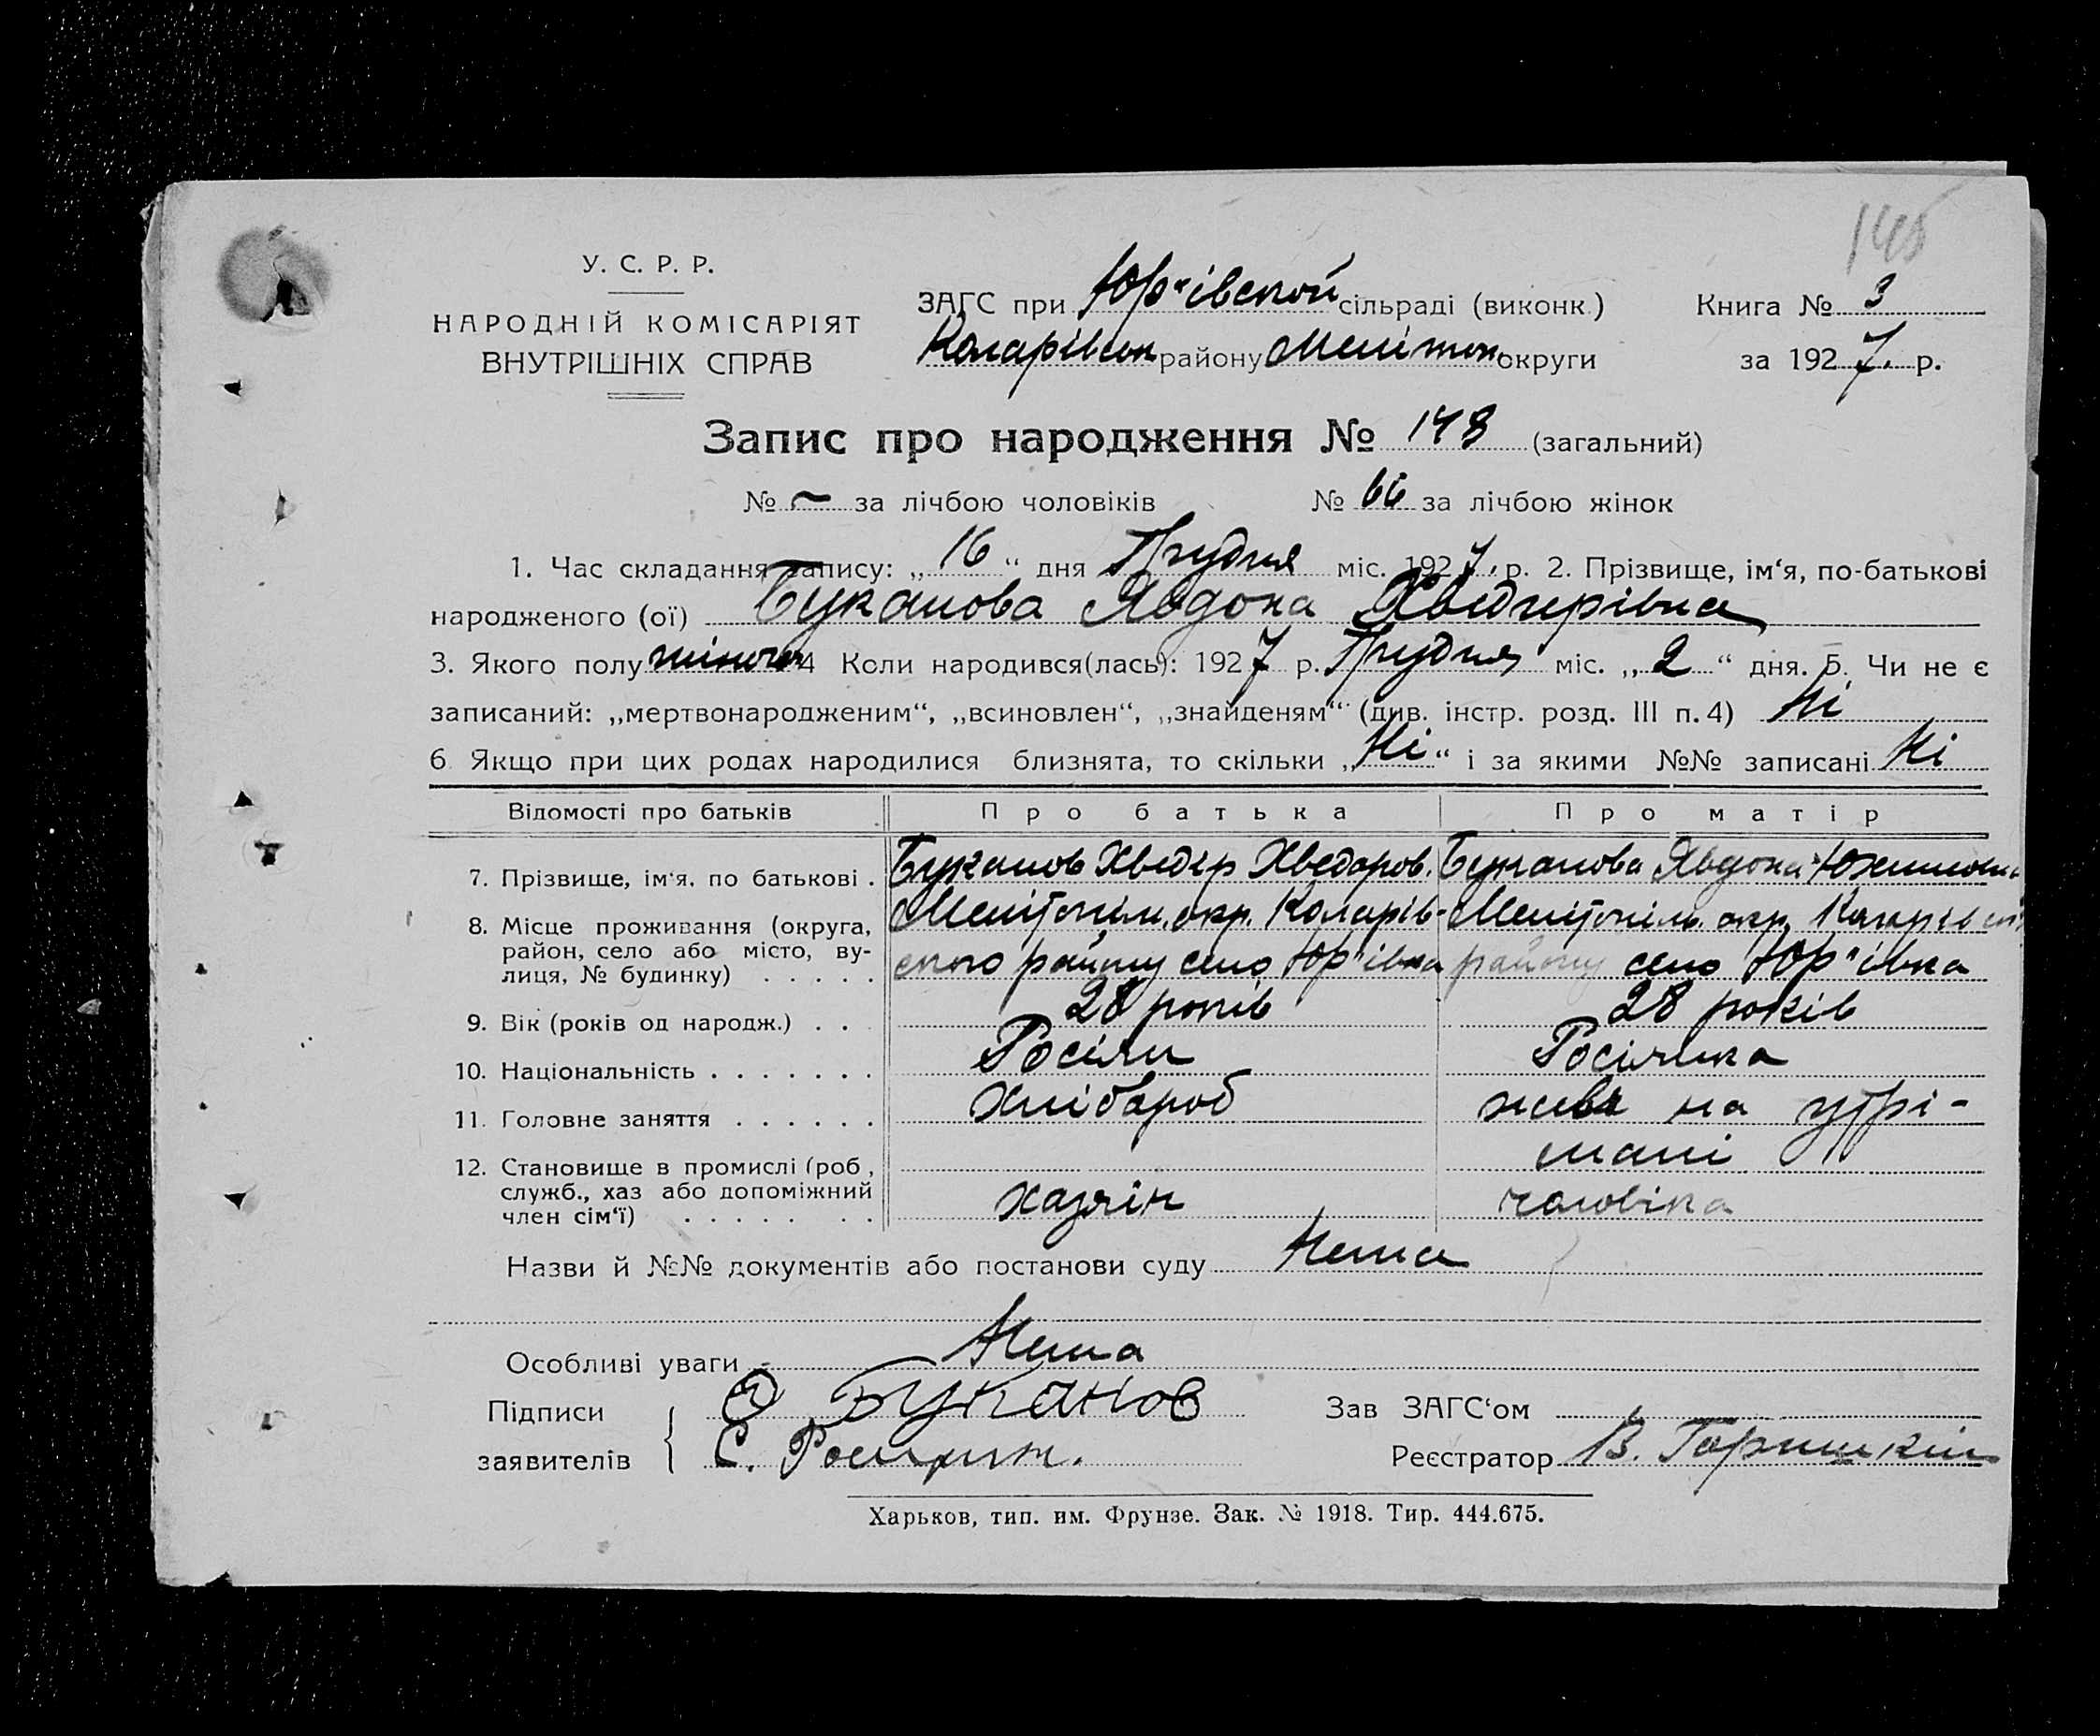 145
У. С. Р. Р.
НАРОДНІЙ КОМІСАРІЯТ
ВНУТРІШНІХ СПРАВ
ЗАГС при Юр"івской сільраді (виконк.) Книга № 3
Коларівськ району Мелітоп. округи за 1927 р.
Запис про народження № 148 (загальний)
№ ~ за лічбою чоловіків № 66 за лічбою жінок
1. Час складання запису: „16“ дня Грудня міс. 1927 р. 2. Прізвище, ім‘я, по-батькові
народженого (ої) Буканова Явдоха Хведерівна
3. Якого полу жіноч 4 Коли народився(лась): 1927 р. Грудня міс. „2“ дня. 5. Чи не є
записаний: „мертвонародженим“, „всиновлен“, „знайденям“ (див. інстр. розд. III п. 4) Ні
6. Якщо при цих родах народилися близнята, то скільки „Ні“ і за якими №№ записані Ні
Відомості про батьків Про батька Про матір
7. Прізвище, ім‘я, по батькові . Буканов Хведір Хведоров. Буканова Явдоха
8. Місце проживання (округа, район, село або місто, вулиця, № будинку) . . . . . Мелітопіль. окр. Коларів- Мелітопіль. окр. Коларівск
ского району село Юр"івка району село Юр"івка
9. Вік (років од народж.) . . . 28 років 28 років
10. Національність . . . . . . . Росіян Росіянка
11. Головне заняття . . . . . . Хлібароб живе на утрі-
мані
12. Становище в промислі (роб., служб., хаз або допоміжний член сім‘ї) . . . . . . . хазяін чоловіка
Назви й №№ документів або постанови суду Нема
Особливі уваги Нема
Підписи заявителів Ф Буканов Зав ЗАГС‘ом
С. Реєстратор В.
Харьков, тип. им. Фрунзе. Зак. № 1918. Тир. 444.675.